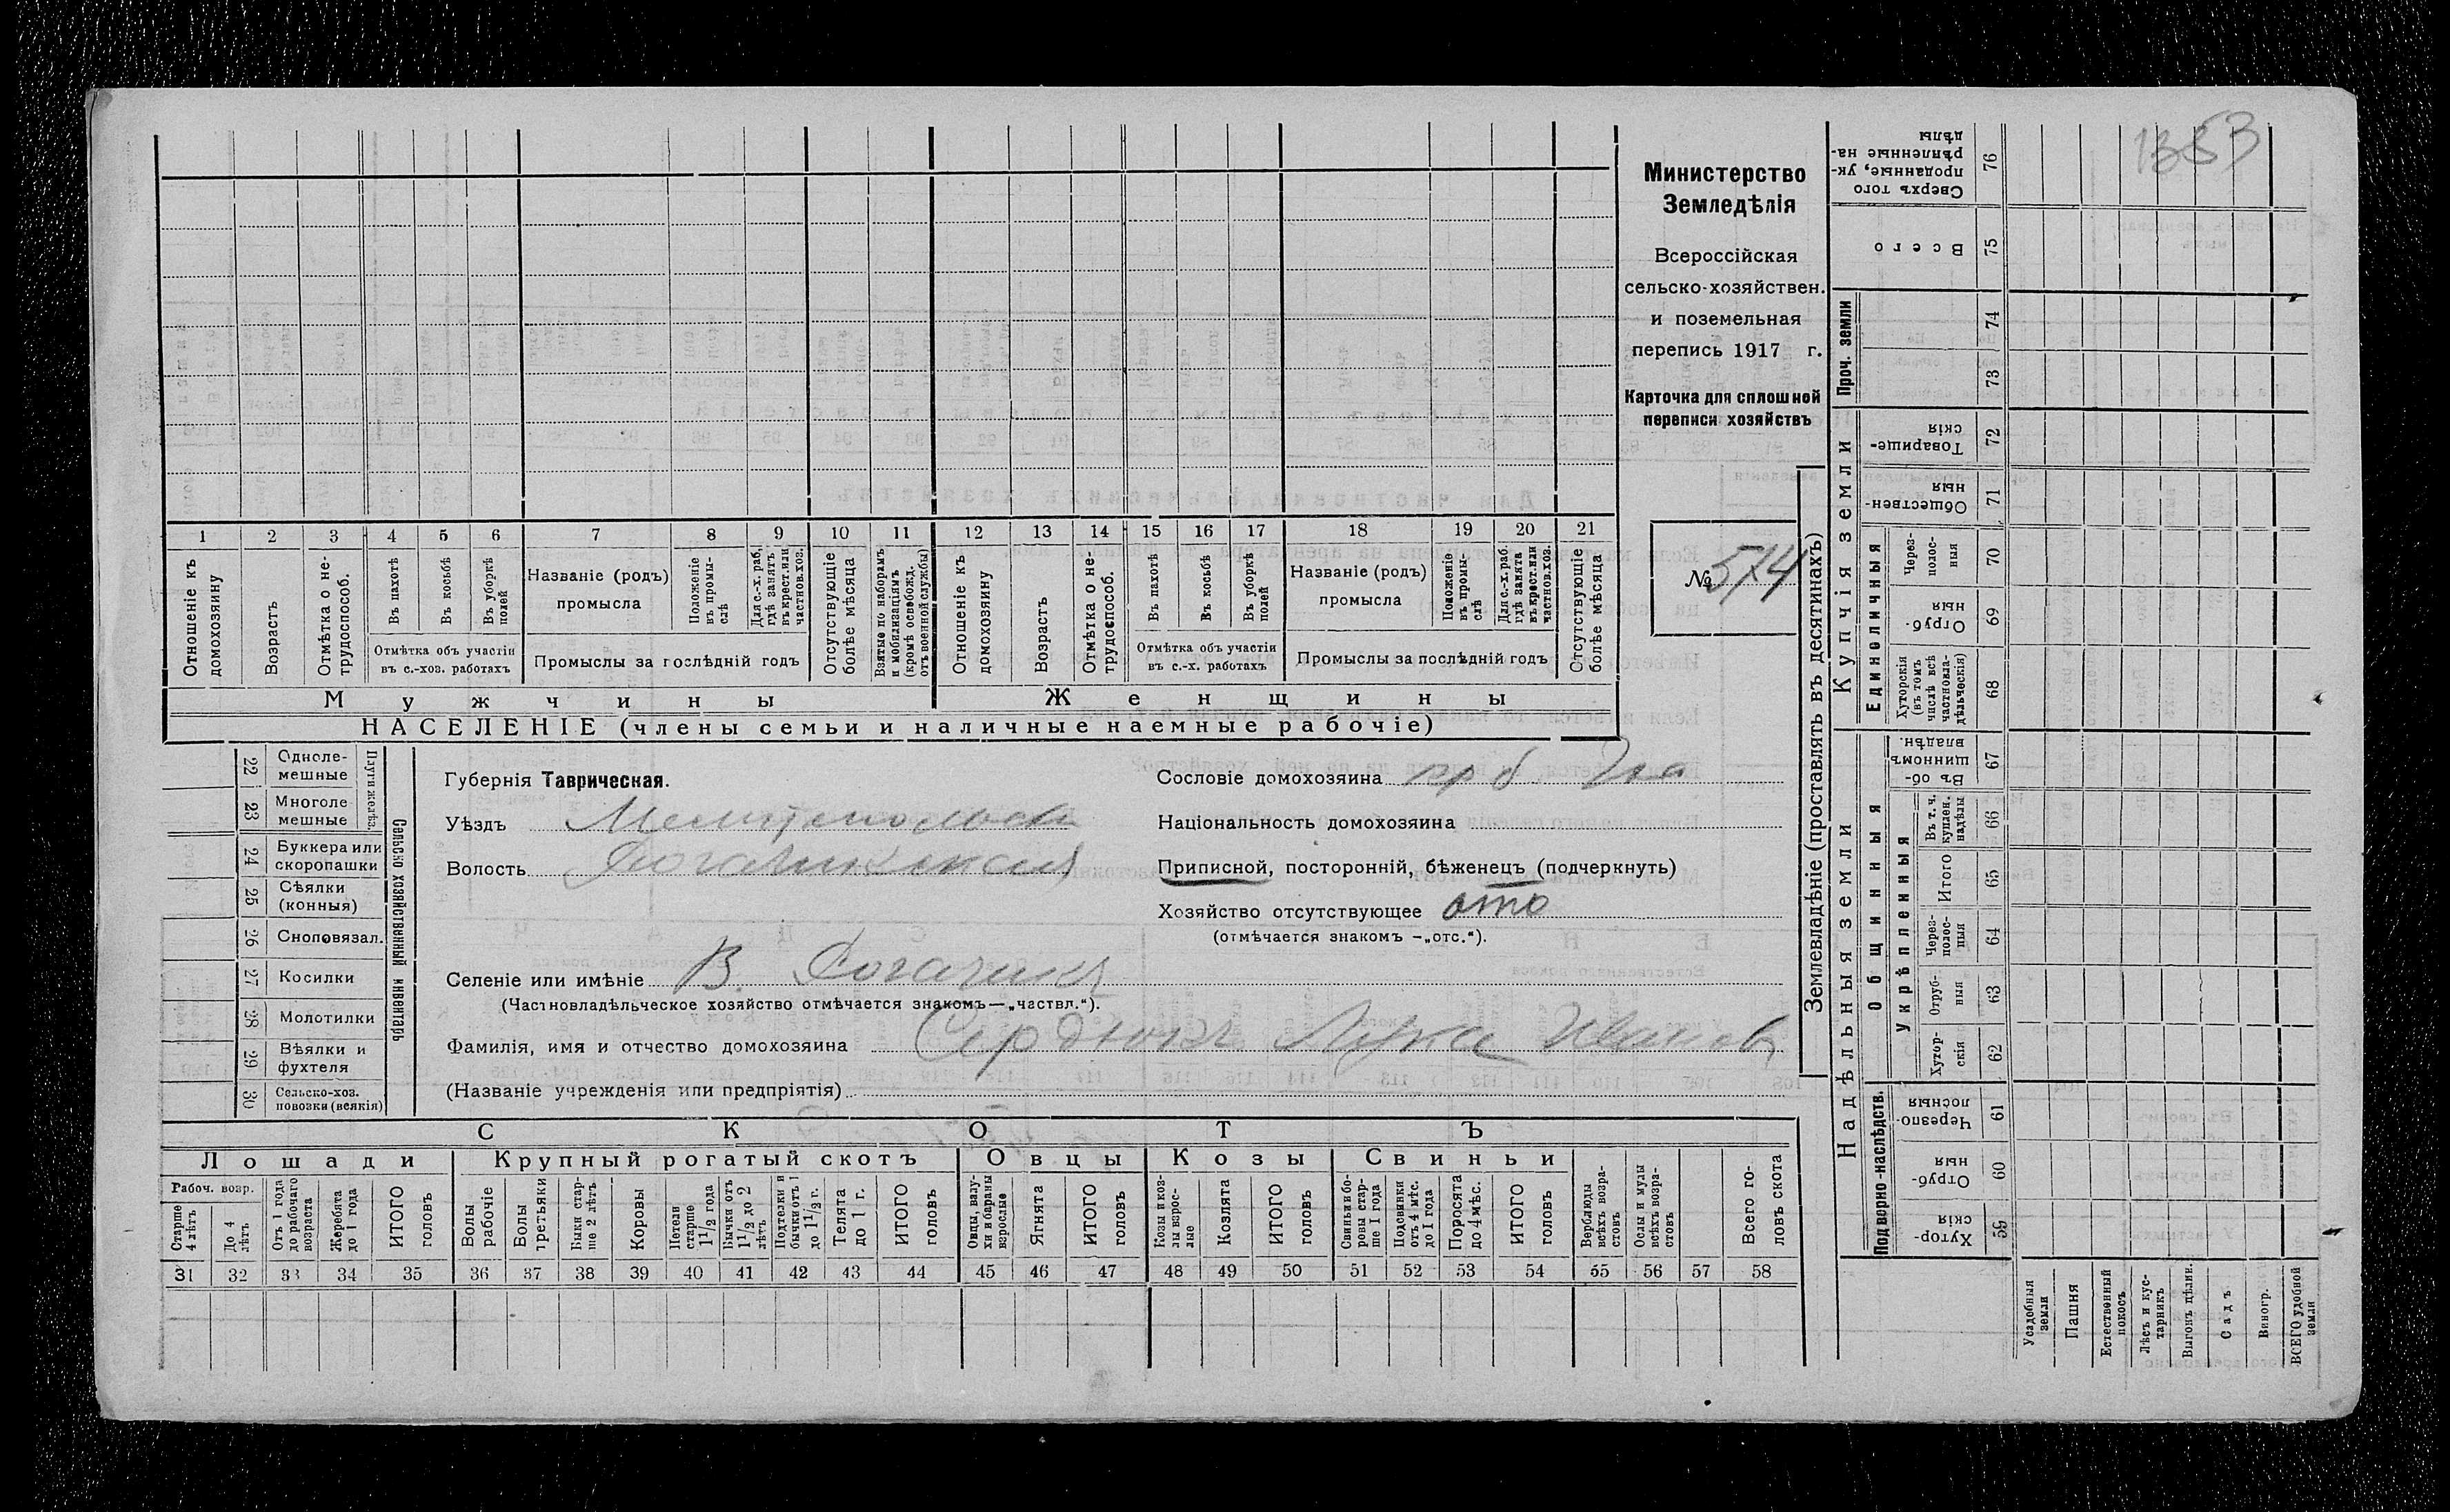 1353
Министерство
Земледѣлія
Всероссійская
сельско-хозяйствен.
и поземельная
перепись 1917 г.
Карточка для сплошной
переписи хозяйствъ
№ 574
1 2 3 4 5 6 7 8 9 10 11 12 13 14 15 16 17 18 19 20 21
Отношеніе къ домохозяину
Возрастъ
Отмѣтка о нетрудоспособ.
Въ пахотѣ
Въ косьбѣ
Въ уборкѣ полей
Отмѣтка объ участіи
въ с.-хоз. работахъ
Названіе (родъ)
промысла
Положеніе въ промыслѣ
Для с.-х. раб. гдѣ занятъ въ крест. или частнов. хоз.
Промыслы за послѣдній годъ
Отсутствующіе болѣе мѣсяца
Взятые по наборамъ и мобилизаціямъ (кромѣ освобожд. отъ военной службы)
Отношеніе къ домохозяину
Возрастъ
Отмѣтка о нетрудоспособ.
Въ пахотѣ
Въ косьбѣ
Въ уборкѣ полей
Отмѣтка объ участіи
въ с.-х. работахъ
Названіе (родъ)
промысла
Положеніе въ промыслѣ
Для с.-х. раб. гдѣ занята въ крест. или частнов. хоз.
Промыслы за послѣдній годъ
Отсутствующіе болѣе мѣсяца
Мужчины
Женщины
НАСЕЛЕНІЕ (члены семьи и наличные наемные рабочіе)
22 Однолемешные
23 Многолемешные
Плуги желѣз.
24 Буккера или скоропашки
25 Сѣялки (конныя)
26 Сноповязал.
27 Косилки
28 Молотилки
29 Вѣялки и фухтеля
30 Сельско-хоз. повозки (всякія)
Сельско хозяйственный инвентарь
Губернія Таврическая.
Уѣздъ Мелитопольск
Волость Рогачикская
Селеніе или имѣніе В. Рогачикъ
(Частновладѣльческое хозяйство отмѣчается знакомъ—„частвл.“).
Фамилія, имя и отчество домохозяина Сердюкъ Лука Иванов
(Названіе учрежденія или предпріятія)
Сословіе домохозяина
Національность домохозяина
Приписной, посторонній, бѣженецъ (подчеркнуть)
Хозяйство отсутствующее отс
(отмѣчается знакомъ —„отс.“).
СКОТЪ
Лошади
Крупный рогатый скотъ
Овцы
Козы
Свиньи
Рабоч. возр.
Старше 4 лѣтъ
До 4 лѣтъ
Отъ 1 года до рабочаго возраста
Жеребята до 1 года
ИТОГО головъ
Волы рабочіе
Волы третьяки
Быки старше 2 лѣтъ
Коровы
Нетели старше 1 1/2 года
Бычки отъ 1 1/2 до 2 лѣтъ
Подтелки и бычки отъ 1 до 1 1/2 г.
Телята до 1 г.
ИТОГО головъ
Овцы, валухи и бараны взрослые
Ягнята
ИТОГО головъ
Козы и козлы взрослые
Козлята
ИТОГО головъ
Свиньи и боровы старше 1 года
Подсвинки отъ 4 мѣс. до 1 года
Поросята до 4 мѣс.
ИТОГО головъ
Верблюды всѣхъ возрастовъ
Ослы и мулы всѣхъ возрастовъ
Всего головъ скота
31 32 33 34 35 36 37 38 39 40 41 42 43 44 45 46 47 48 49 50 51 52 53 54 55 56 57 58
Землевладѣніе (проставлять въ десятинахъ)
Надѣльныя земли
Купчія земли
Проч. земли
Подворно-наслѣдств.
Общинныя
Укрѣпленныя
Единоличныя
Сверхъ того проданные, укрѣпленные надѣлы 76
Всего 75
74
73
Товарищескія 72
Общественныя 71
Черезполосныя 70
Отрубныя 69
Хуторскія (въ томъ числѣ всѣ частновладѣльческія) 68
Въ общинномъ владѣн. 67
Въ т. ч. куплен. надѣлы 66
Итого 65
Черезполосныя 64
Отрубныя 63
Хуторскія 62
Черезполосныя 61
Отрубныя 60
Хуторскія 59
Усадебныя земли
Пашня
Естественный покосъ
Лѣсъ и кустарникъ
Выгонъ цѣлин.
Садъ
Виногр.
ВСЕГО удобной земли